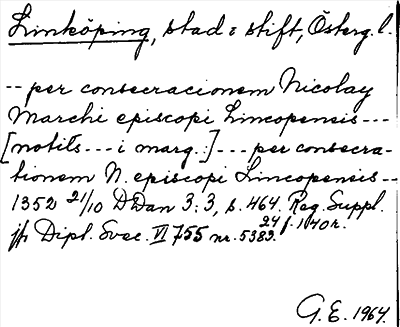 Linköping, stad & stift, Österg. l.
-- per consecracionem Nicolay
Marchi episcopi Lincopensis ---
[notils --- i marg.:] --- per consecra-
tionem N. episcopi Lincopensis --
1352 21/10 DDan 3:3, s. 464. Reg. Suppl.
24 f. 140r.
jfr Dipl. Svec. VI 755 nr. 5383.
G. E. 1964.